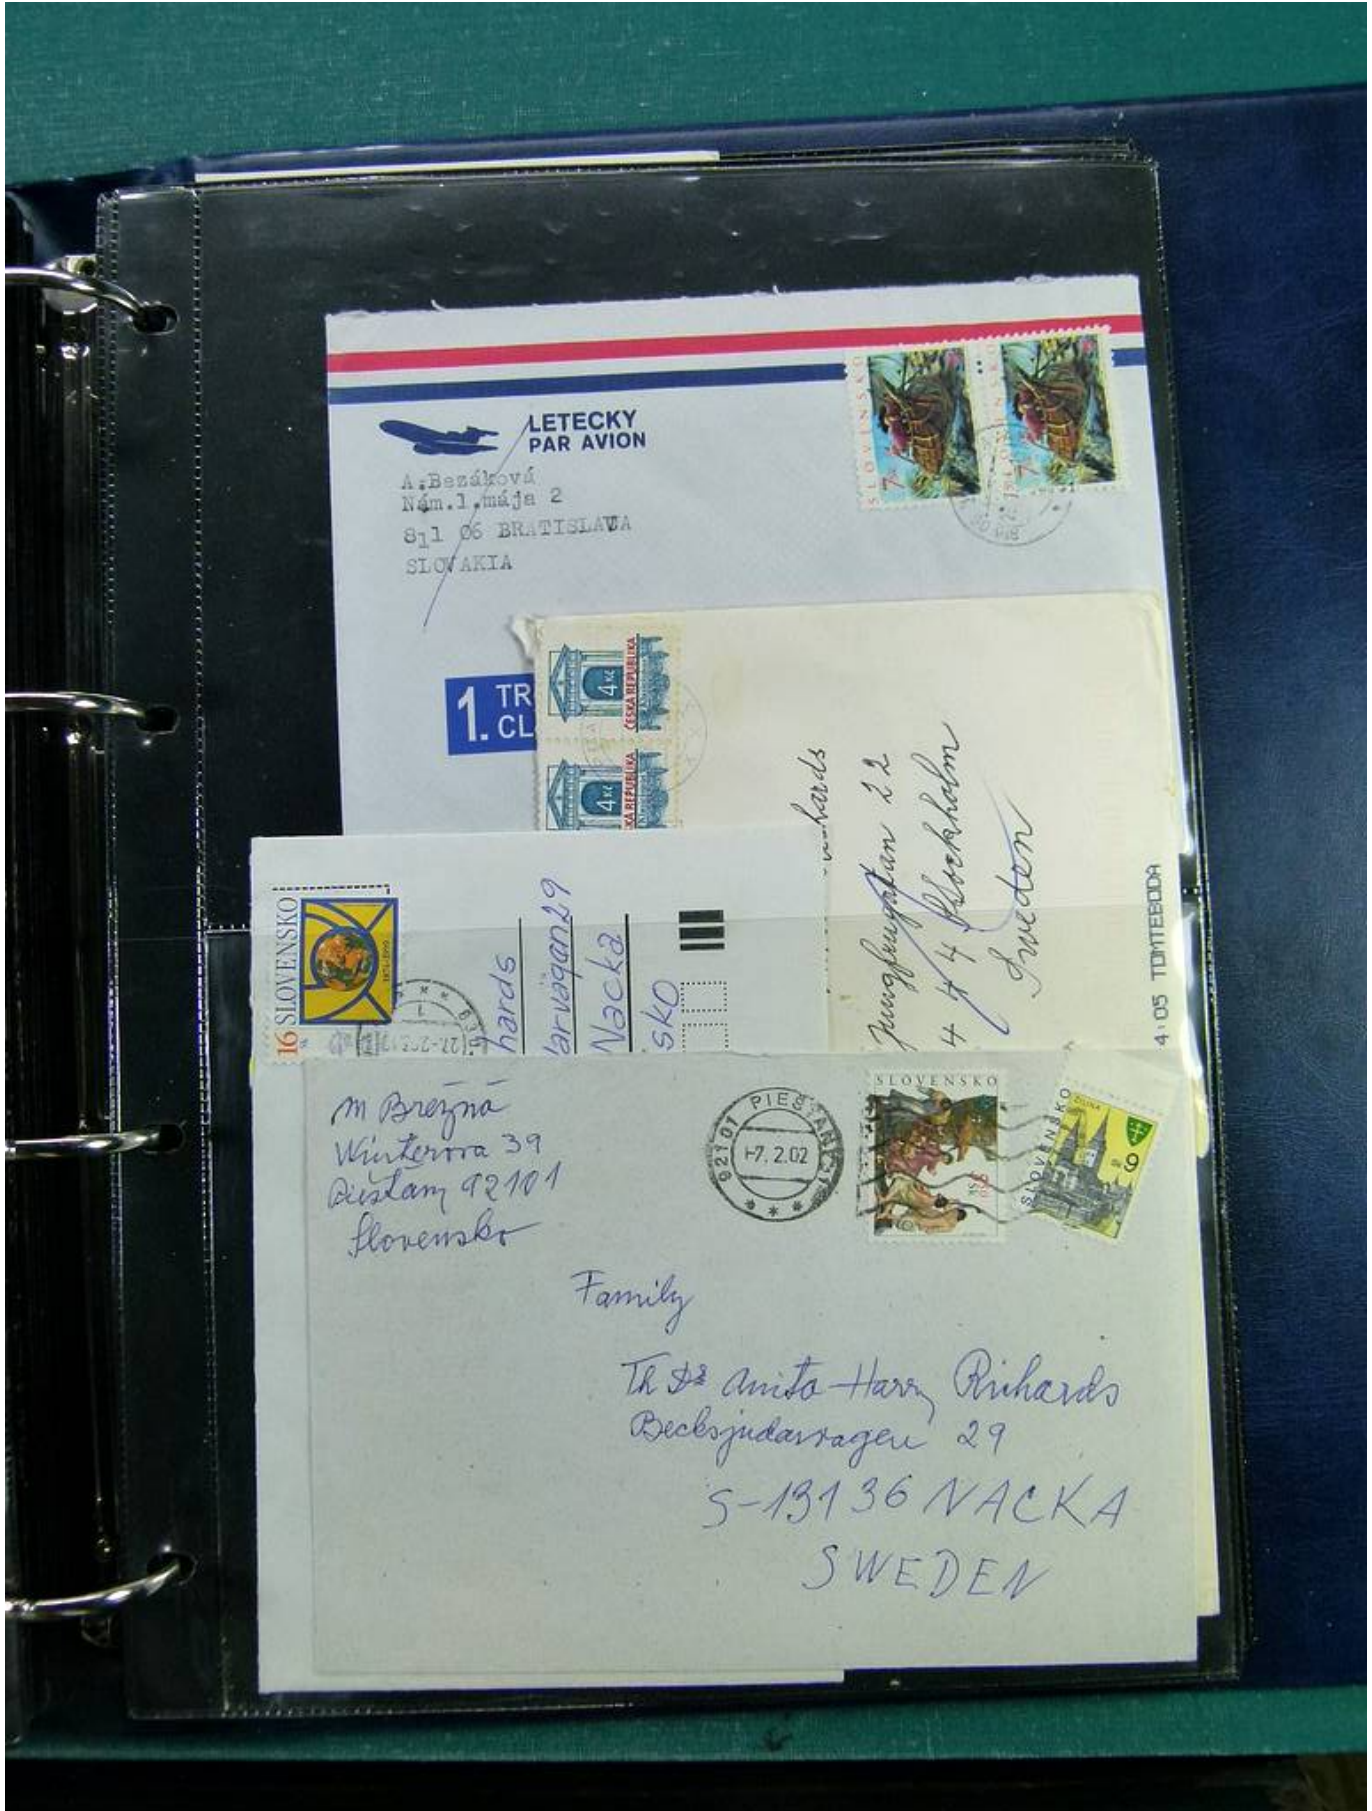 LETECKY
PAR AVION
A.Bezáková
Nám.1.mája 2
811 06 BRATISLAVA
SLOVAKIA
SLOVENSKO
7
SLOVENSKO
7
1. TR
CL
4 Kč
ČESKÁ REPUBLIKA
4 Kč
KÁ REPUBLIKA
hards
Jungfrugatan 22
4 4 4 Stockholm
Sweden
4:05 TOMTEBODA
16 SLOVENSKO
1874-1999
hards
arvägan 29
Nacka
sko
M Brezina
Winterova 39
Piešťany 92101
Slovensko
921 01 PIEŠŤANY 1
-7. 2.02
SLOVENSKO
SLOVENSKO
ŽILINA
9 Sk
Family
Th Dr Anita-Harry Richards
Becksjudarvagen 29
S-13136 NACKA
SWEDEN